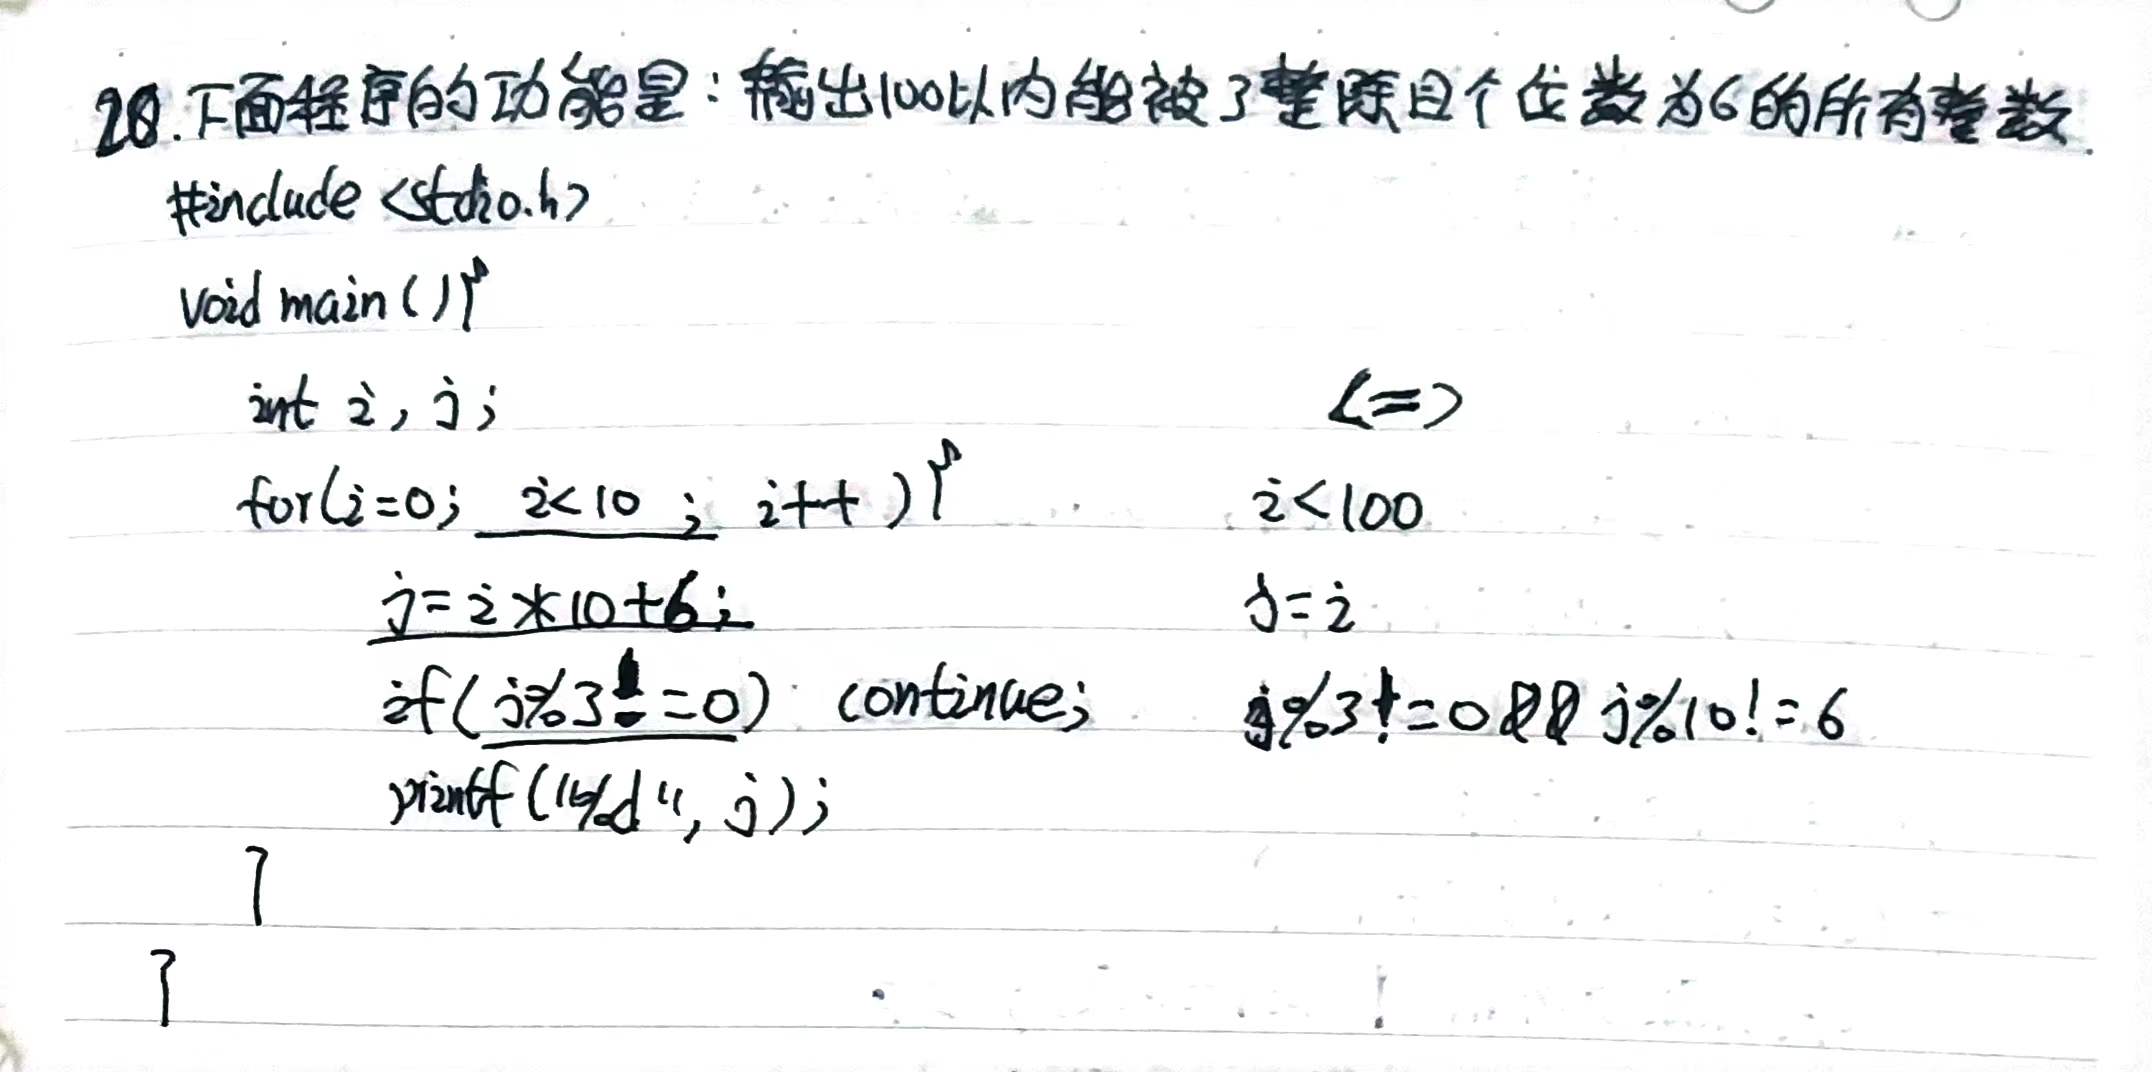 28.下面程序的功能是:输出100以内能被3整除且个位数为6的所有整数.
#include <stdio.h>
void main(){
int i, j;
<=>
for(i=0; i<10 ; i++){
i<100
j=i*10+6;
j=i
if(j%3!=0) continue;
j%3!=0&&j%10!=6
printf("%d", j);
}
}